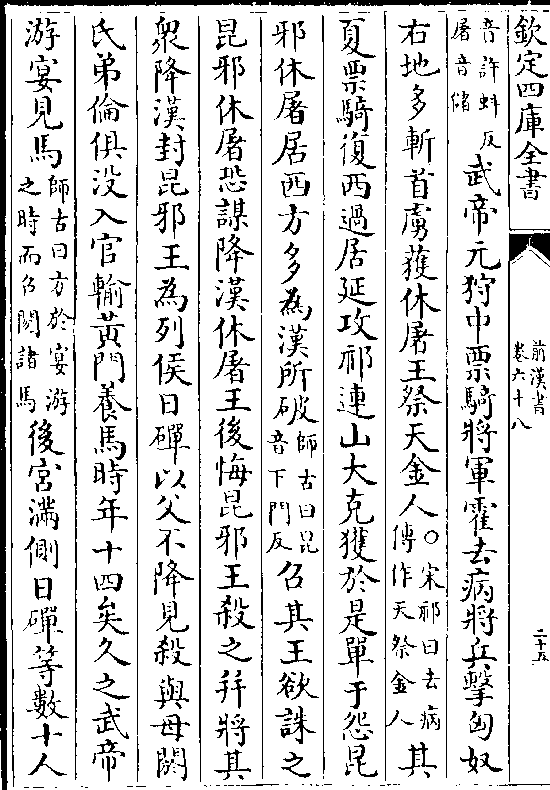 欽定四庫全書
前漢書
卷六十八
二十五
音許蚪反
屠音儲
武帝元狩中票騎將軍霍去病將兵擊匈奴
右地多斬首虜獲休屠王祭天金人
○宋祁曰去病
傳作天祭金人
其
夏票騎復西過居延攻祁連山大克獲於是單于怨昆
邪休屠居西方多為漢所破
師古曰昆
音下門反
召其王欲誅之
昆邪休屠恐謀降漢休屠王後悔昆邪王殺之并將其
衆降漢封昆邪王為列侯日磾以父不降見殺與母閼
氏弟倫俱没入官輸黃門養馬時年十四矣久之武帝
游宴見馬
師古曰方於宴游
之時而召閱諸馬
後宮滿側日磾等數十人